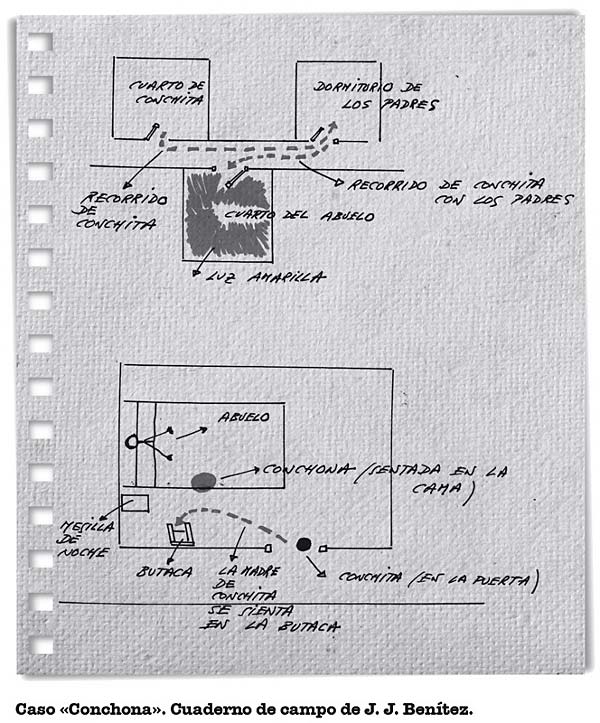 CUARTO DE
CONCHITA
DORMITORIO DE
LOS PADRES
RECORRIDO
DE
CONCHITA
RECORRIDO DE CONCHITA
CON LOS PADRES
CUARTO DEL ABUELO
LUZ AMARILLA
ABUELO
CONCHONA (SENTADA EN LA
CAMA)
MESILLA
DE
NOCHE
BUTACA
LA MADRE
DE
CONCHITA
SE SIENTA
EN LA BUTACA
CONCHITA (EN LA PUERTA)
Caso «Conchona». Cuaderno de campo de J. J. Benítez.